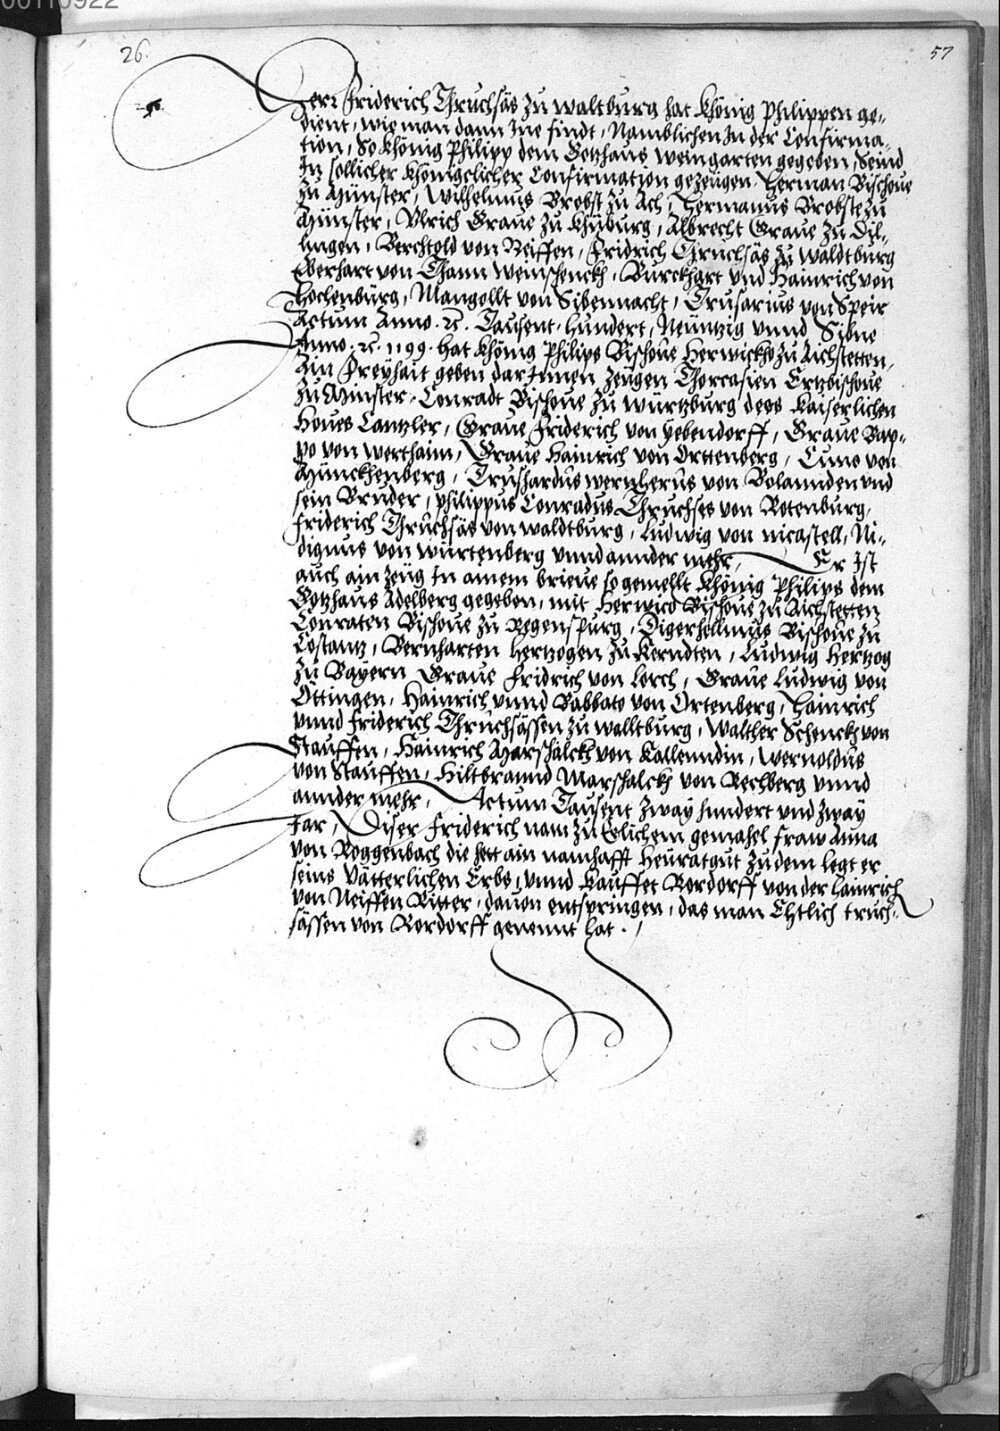 00110922
26.
57
Herr Friderich Thruchsäs zu Waltburg hat Khönig Philippen ge-
dient, wie man dann Ine findt, Namblichen In der Confirma-
tion, So Khönig Philipp dem Gotzhaus Weingarten gegeben, Seind
In sollicher Khönigclicher Confirmation gezeugen. Herman Bischoue
zu Münster, Wilhelmus Brobst zu Ach, Hermanus Brobste zu
Münster, Vlrich Graue zu Khyburg, Albrecht Graue zu Dil-
lingen, Berchtold von Neiffen, Fridrich Thruchsäs zu Waldtburg
Eberhart von Thann Weinschenckh, Burckhart vnd Hainrich von
Hochenburg, Mangollt von Sibennacht, Trusarius von Speir
Actum Anno. etc. Tausent. hundert, Neuntzig vnnd Sibne
Anno. etc. 1199. hat Khönig Philips Bischoue Herwickho zu Aichstetten,
Ain Freyhait geben dar Innen zeugen Thorcasien Ertzbischoue
zu Minster, Conradt Bischoue zu Würtzburg deos Kaiserlichen
Houes Cantzler, Graue Friderich von Hebendorff, Graue Bap-
po von Werthaim, Graue Hainrich von Orttenberg, Cuno von
Münckhenberg, Trushardus Wernherus von Bolannden vnd
sein Bruder, Philippus Conradus Thruchses von Rotenburg,
Friderich Thruchsäs von Waldtburg, Ludwig von nicastell, Ni-
dignus von Würtenberg vnnd annder mehr, Er Ist
auch ain zeug In ainem brieue so gemellt Khönig Philips dem
Gotzhaus Adelberg gegeben, mit Herwico Bischoue zu Aichstetten
Conraten Bischoue zu Regenspurg, Digerhellmus Bischoue zu
Costantz, Bernharten Hertzogen zu Kerndten, Ludwig Hertzog
zu Bayern Graue Fridrich von Lorch, Graue Ludwig von
Ottingen, Hainrich vnnd Rabbato von Ortenberg, Hainrich
vnnd Friderich Thruchsässen zu Walltburg, Walther Schenckh von
Stauffen, Hainrich Marschalckh von Kallenndin, Wernoldus
von Stauffen, Hiltbrannd Marschalckh von Rechberg vnnd
annder mehr, Actum Tausent zway hundert vnd zway
Jar, Diser Friderich nam zu Eelichem gemahel fraw Anna
von Roggenbach die hett ain namhafft Heuratgut zu dem legt er
seins Vätterlichen Erbs, vnnd Kauffet Rordorff von der Hainrich
von Neiffen Ritter, dauon entspringen, das man Ehtlich truch-
sässen von Rordorff genennt hat.